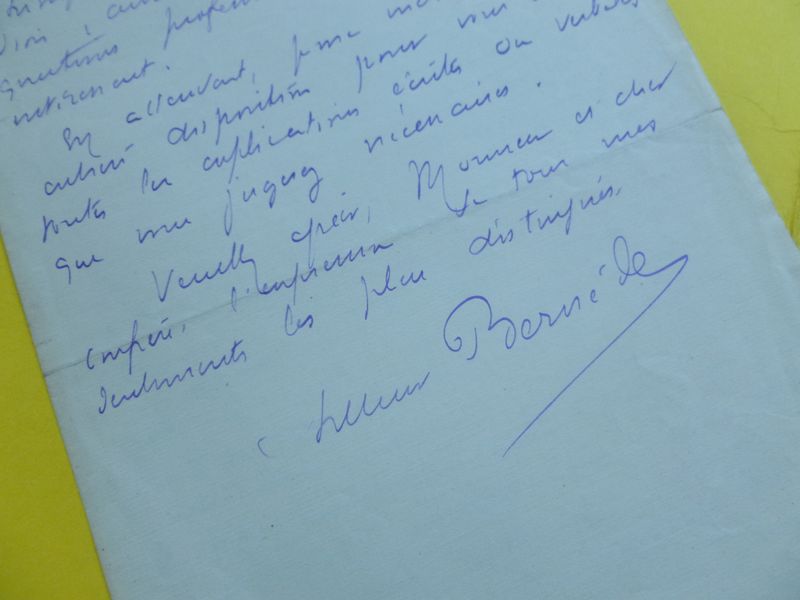 questions
intéressent.
En attendant, je me
entière disposition pour vous
toutes les explications écrites ou verbales
que vous jugerez nécessaires.
Veuillez agréer, Monsieur et cher
confrère, l'expression de tous mes
sentiments les plus distingués.
Bernède